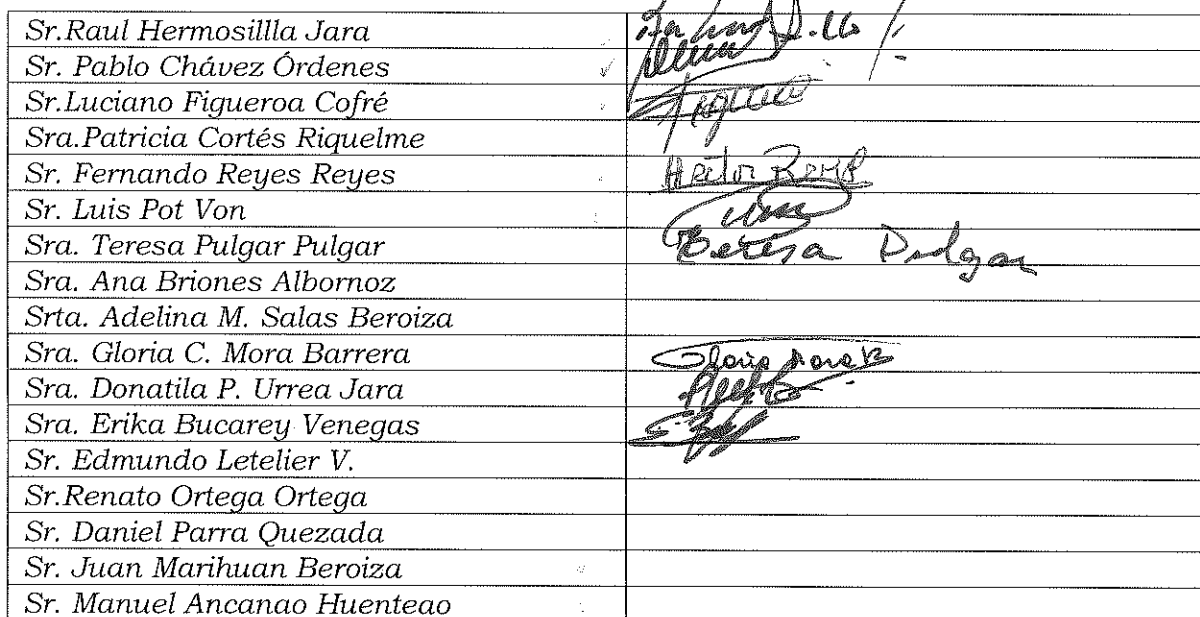 Sr.Raul Hermosillla Jara
Sr. Pablo Chávez Órdenes
Sr.Luciano Figueroa Cofré
Sra.Patricia Cortés Riquelme
Sr. Fernando Reyes Reyes
Sr. Luis Pot Von
Sra. Teresa Pulgar Pulgar Teresa Pulgar
Sra. Ana Briones Albornoz
Srta. Adelina M. Salas Beroiza
Sra. Gloria C. Mora Barrera Gloria Mora B
Sra. Donatila P. Urrea Jara
Sra. Erika Bucarey Venegas
Sr. Edmundo Letelier V.
Sr.Renato Ortega Ortega
Sr. Daniel Parra Quezada
Sr. Juan Marihuan Beroiza
Sr. Manuel Ancanao Huenteao